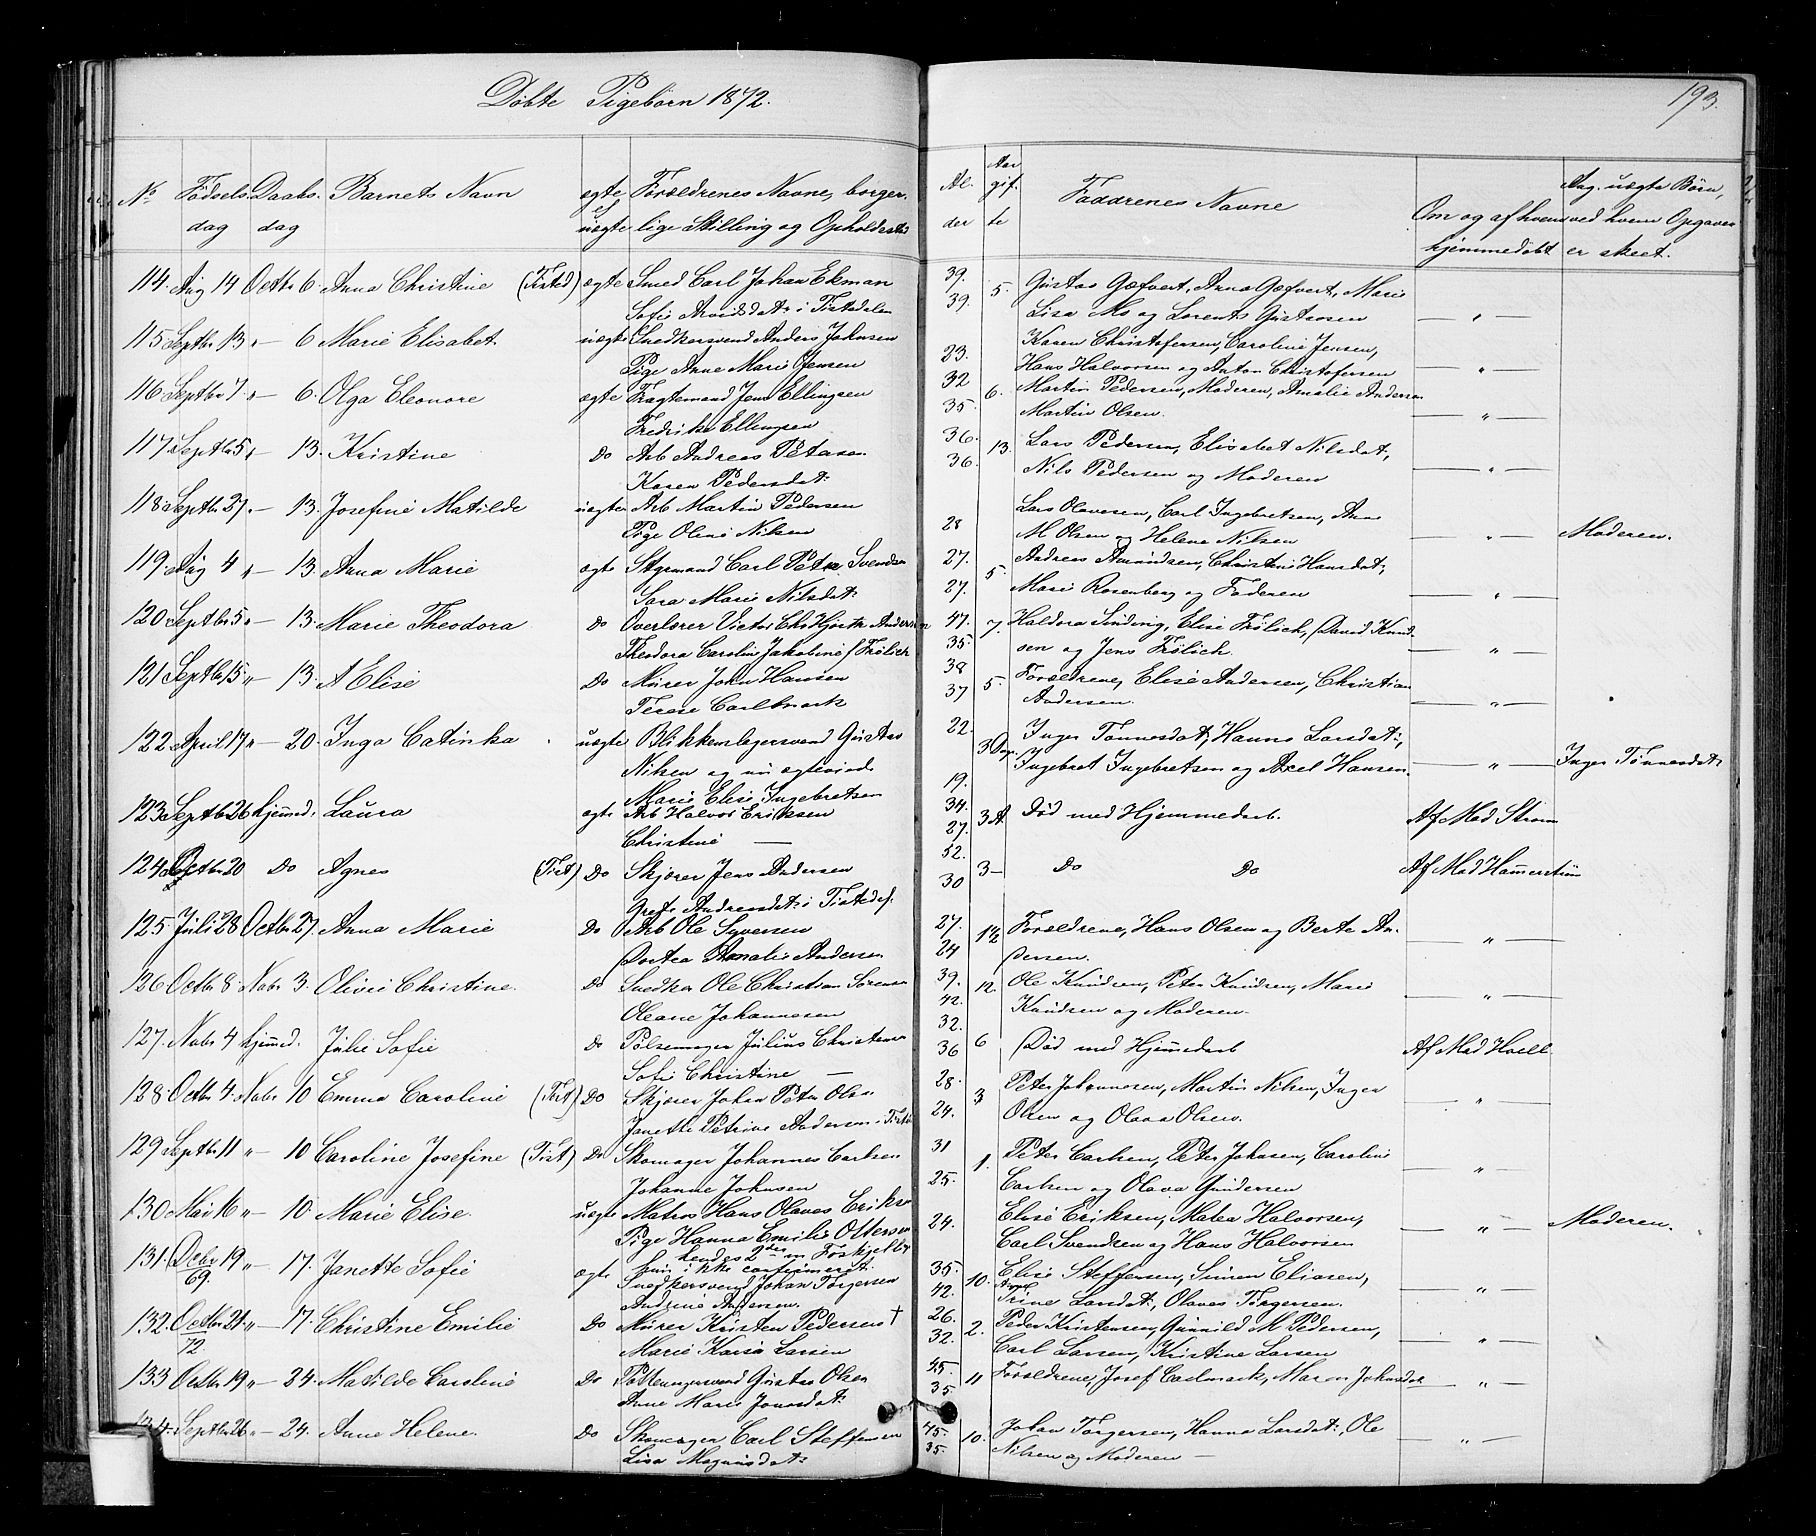 Døbte Pigebørn 1872.
193.
No Fødsels dag Daabs. dag Barnets Navn ægte el uægte Forældrenes Navne, borgerlige Stilling og Opholdssted Al. der Aar gif. te Faddrenes Navne Om og af hvem hjemmedøbt Ang. uægte Børn, ved hvem Opgaven er skeet.
114. Aug 14 Octbr 6. Anna Christine (Tisted) ægte Smed Carl Johan Ekman 39. 5. Gustav Gæfvert, Anna Gæfvert, Marie
Sofie Arvidsdat: i Tistedalen 39. Lisa Mo og Lorents Gustavsen — " —
115 Septbr 13 " — 6 Marie Elisabet. uægte Snedkersvend Anders Johnsen Karen Christofersen, Caroline Jensen,
Pige Anne Marie Jensen 23. Hans Halvorsen og Anton Christofersen — " —
116 Septbr 7 " — 6. Olga Eleonore ægte Fragtemand Jens Ellingsen 32 6. Martin Pedersen, Moderen, Amalie Andersen
Fredrikke Ellingsen 35. Martin Olsen. — " —
117 Septbr 5 " — 13. Kristine Do Arb Andreas Petersen 36. 13. Lars Pedersen, Elisabet Nilsdat,
Karen Pedersdat: 36. Nils Pedersen og Moderen — " —
118 Septbr 27 " — 13. Josefine Matilde uægte Arb Martin Pedersen Lars Olavesen, Carl Ingebretsen, Ane
Pige Oline Nilsen 28 M Olsen og Helene Nilsen — " — Moderen.
119. Aug 4 " — 13. Anna Marie ægte Styrmand Carl Peter Svendsen 27. 5. Andreas Amundsen, Christine Hansdat;
Sara Marie Nilsdat: 27. Marie Rosenberg og Faderen — " —
120 Septbr 5 " — 13. Marie Theodora Do Overlærer Victor Chr Hjort Andersen 47. 7. Haldora Sinding, Elise Frølich, David Knud-
Theodora Caroline Jakobine f Frølich 35. sen og Jens Frølich. — " —
121 Septbr 15 " — 13. A Elise Do Murer John Hansen 38 5. Forældrene, Elise Andersen, Christian
Terese Carlmark 37 Andersen. — " —
122 April 17 " — 20. Inga Catinka uægte Blikkenslagersvend Gustav 22. 3 Dage. Inger Tønnesdat, Hanna Larsdat:,
Nilsen og nu ægteviede Ingebret Ingebretsen og Axel Hansen — " — Inger Tønnesdat:
Marie Elise Ingebretsen 19.
123 Septbr 26 hjemmed. Laura ægte Arb Halvor Eriksen 34. 3 A Død med Hjemmedaab. Af Mad Strøm
Christine — 27.
124 Octbr 20 Do Agnes (Tist) Do Skjører Jens Andersen 52. 3 — Do Do Af Mad Hammerstrøm
Grete Andreasdat: i Tistedal. 30
125 Juli 28 Octbr 27. Anna Marie Do Arb Ole Syversen 27. 1½ Forældrene, Hans Olsen og Berte An-
Dortea Amalie Andersen 24 dersen. — " —
126 Octbr 8 Nobr 3. Olivie Christine. Do Snedker Ole Christian Sørensen 39. 12. Ole Knudsen, Peter Knudsen, Marie
Oleane Johannesen 42. Knudsen og Moderen. — " —
127. Nobr 4 hjemmed. Julie Sofie Do Pølsemager Julius Christensen 32. 6 Død med Hjemmedaab Af Mad Hvell
Sofie Christine — 36
128 Octbr 4. Nobr 10 Emma Caroline (Tist) Do Skjører Johan Peter Olsen 28. 3 Peter Johannesen, Martin Nilsen, Inger
Janette Petrine Andersen i Tist. 24. Olsen og Olava Olsen. — " —
129 Septbr 11 " — 10 Caroline Josefine (Tist) Do Skomager Johannes Carlsen 31 1. Peter Carlsen, Peter Johnsen, Caroline
Johanne Johnsen 25. Carlsen og Olava Gundersen — " —
130 Mai 16 " — 10. Marie Elise. uægte Matros Hans Olaves Eriksen Elise Eriksen, Matea Halvorsen,
Pige Hanna Emilie Ottersen 24. Carl Svendsen og Hans Halvorsen — " — Moderen.
hendes 2den m Forskjellig
hun i ikke confirmeret.
131. Debr 19 " — 17. Janette Sofie ægte Snedkersvend Johan Torgersen 35. 10. Elise Steffensen, Simen Eliasen,
69. Andrine Andersen. 42. Anne Trine Larsdat:, Olaves Torgersen. — " —
132. Octbr 21 " — 17. Christine Emilie Do Murer Kristen Pedersen † 26. 2. Peder Kristensen, Gunnild M Pedersen,
72 Marie Karine Larsen 32. Carl Larsen, Kristine Larsen — " —
133 Octbr 19 " — 24. Matilde Caroline Do Pottemagersvend Gustav Olsen 45. 11 Forældrene, Josef Carlmark, Maren Johnsdat
Anne Marie Jonasdat: 35. — " —
134. Septbr 26 " — 24. Anne Helene. Do Skomager Carl Steffensen 45. 10. Johan Torgersen, Hanna Larsdat:, Ole
Lisa Magnusdat: 35. Nilsen og Moderen — — " —